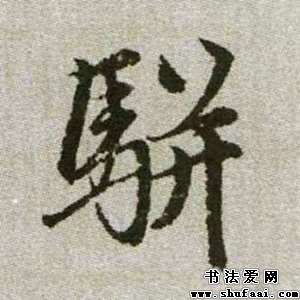 駢
书法爱网
www.shufaai.com